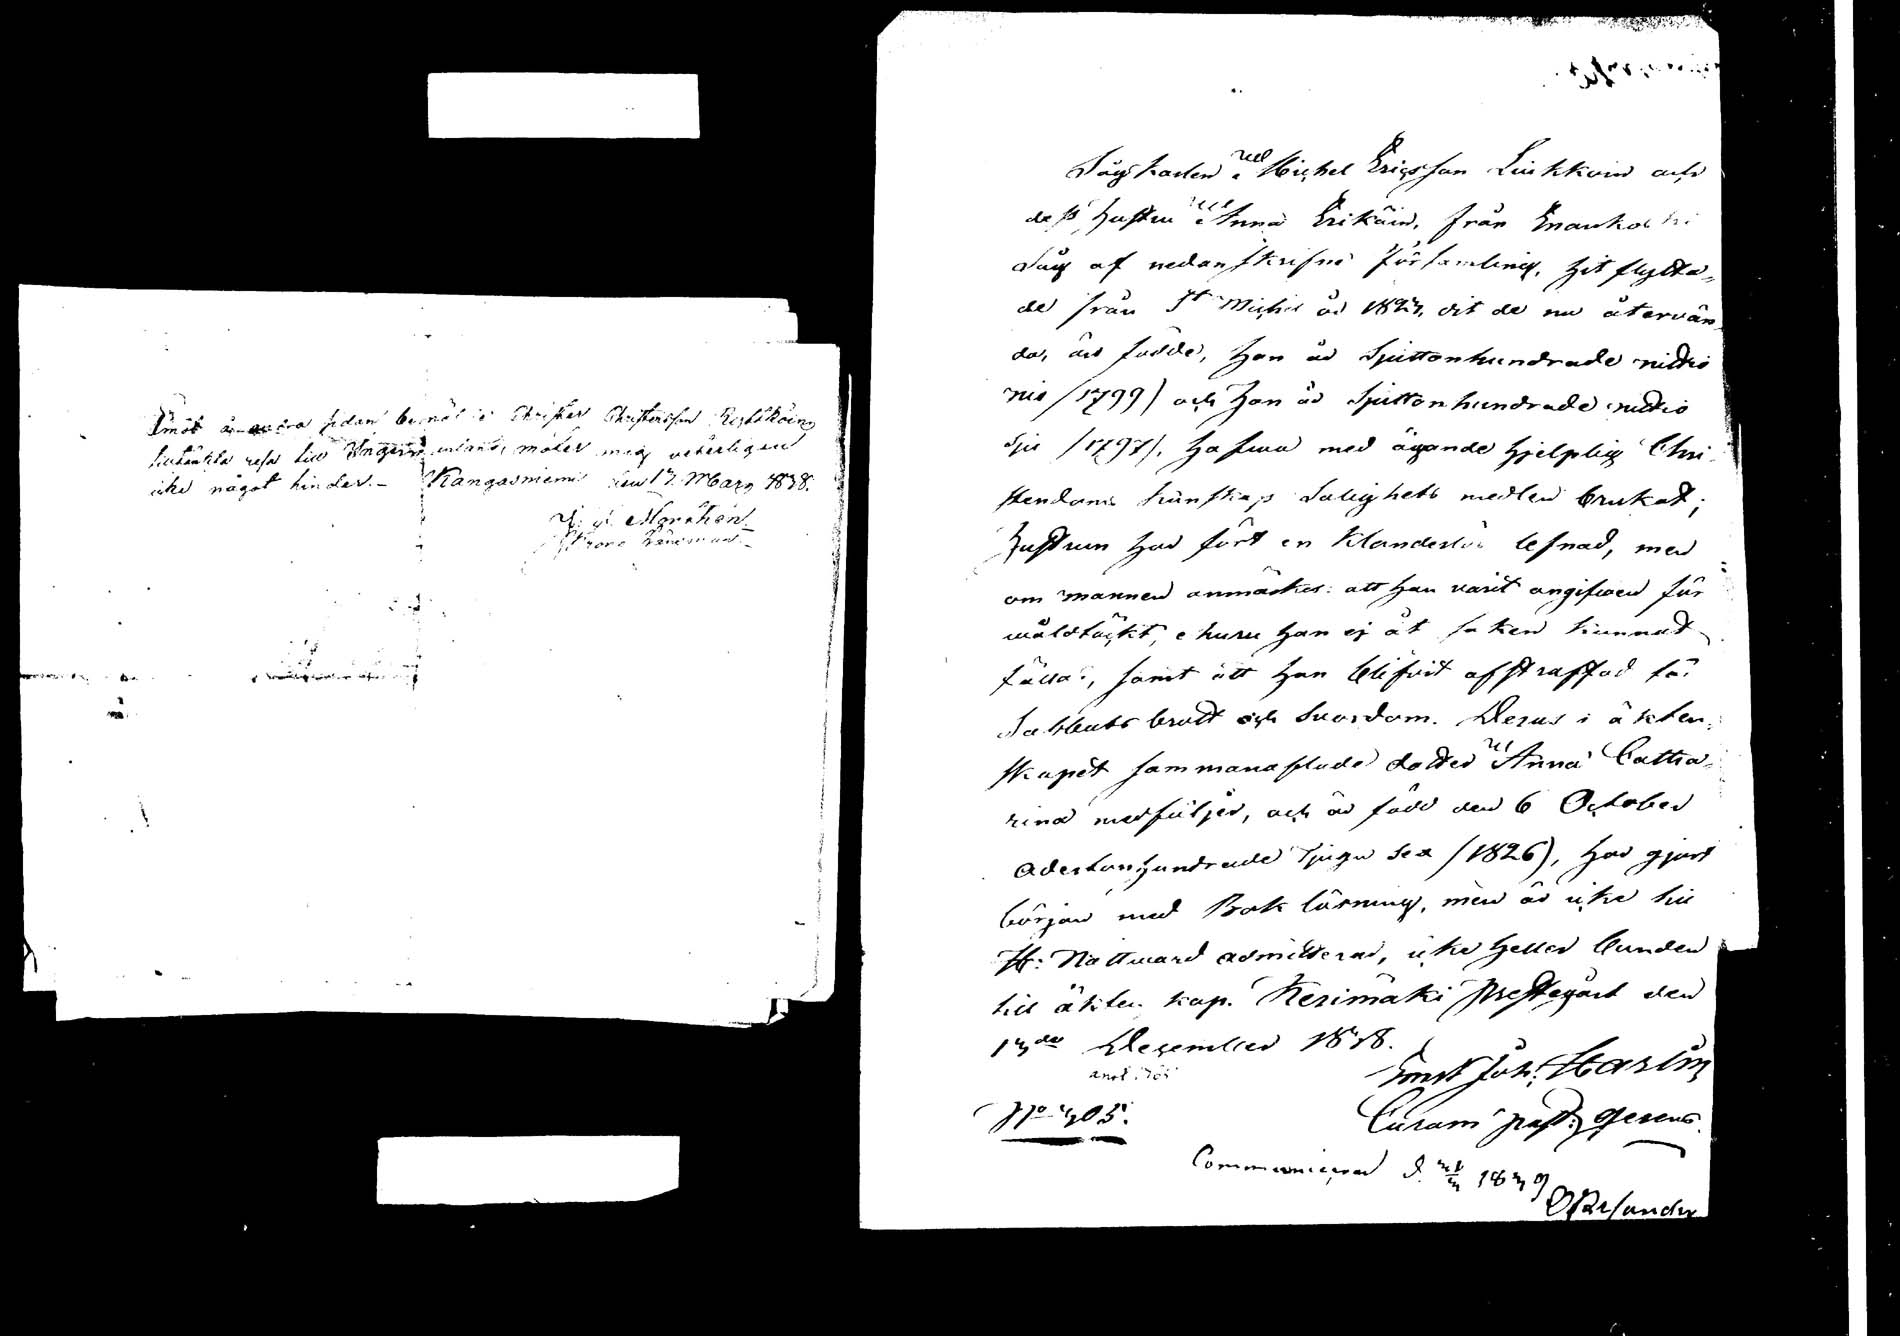 Imot å andra sidan benäl:e Christer Christersson
tilltänkta resa till Ingermanland, möter mig veterligen
icke något hinder. Kangasniemi den 17 Mars 1838.
Krono Länsman
Sågkarlen Michel Ericsson Liukkoin och
dess hustru Anna Erikäin, från Enonkoski
Såg af nedanskrifne Församling, hit flytta-
de från St Michel år 1823, dit de nu återvän-
da, äro födde, han år Sjuttonhundrade nittio
nio (1799) och hon år Sjuttonhundrade nittio
sju (1797), hafwa med ägande hjelplig Chri-
stendoms kunskap Salighets medlen brukat;
Hustrun har fört en Klanderlös lefnad, men
om mannen anmärkes: att han varit angifwen för
wåldtäckt, ehuru han ej åt saken kunnat
fällas, samt att han blifvit afstraffad för
Sabbats brott och svordom. Deras i äkten-
skapet sammanaflade dotter Anna Catha-
rina medföljer, och är född den 6 October
Adertonhundrade Tjugu sex (1826), har gjort
början med Bok läsning, men är icke till
H: Nattward admitterad, icke heller bunden
till äktenskap. Kerimäki Prestegård den
13de December 1838.
Ernst Joh: Harlin
No 305.
Curam past: gerens.
Communicerad d. 1839